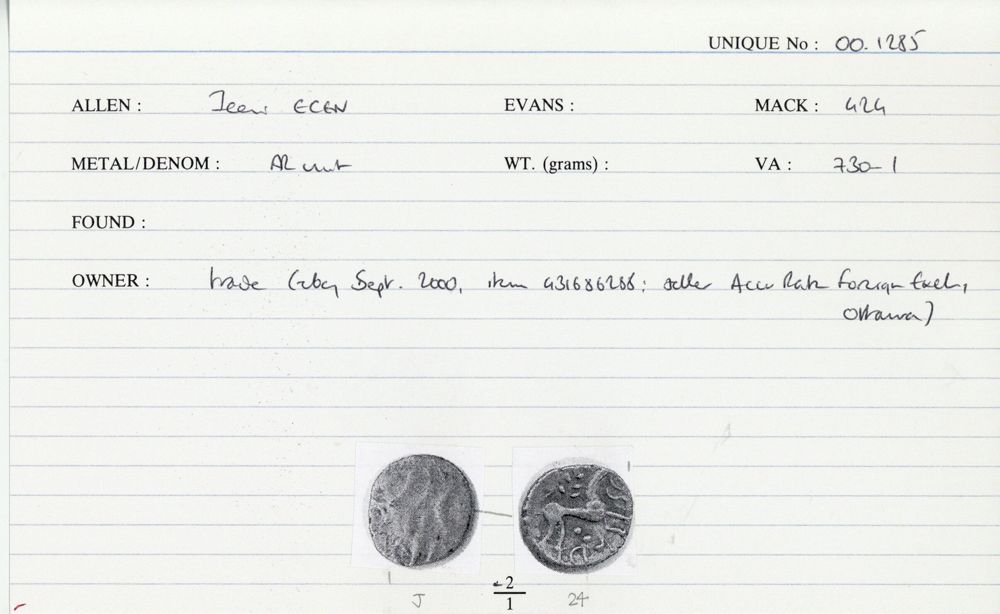 UNIQUE No : 00.1285
ALLEN : Iceni ECEN EVANS : MACK : 424
METAL/DENOM : AR unit WT. (grams) : VA : 730-1
FOUND :
OWNER : trade (eBay Sept. 2000, item 431686266: seller Accu Rate Foreign Exch,
Ottawa)
2
1
J 24